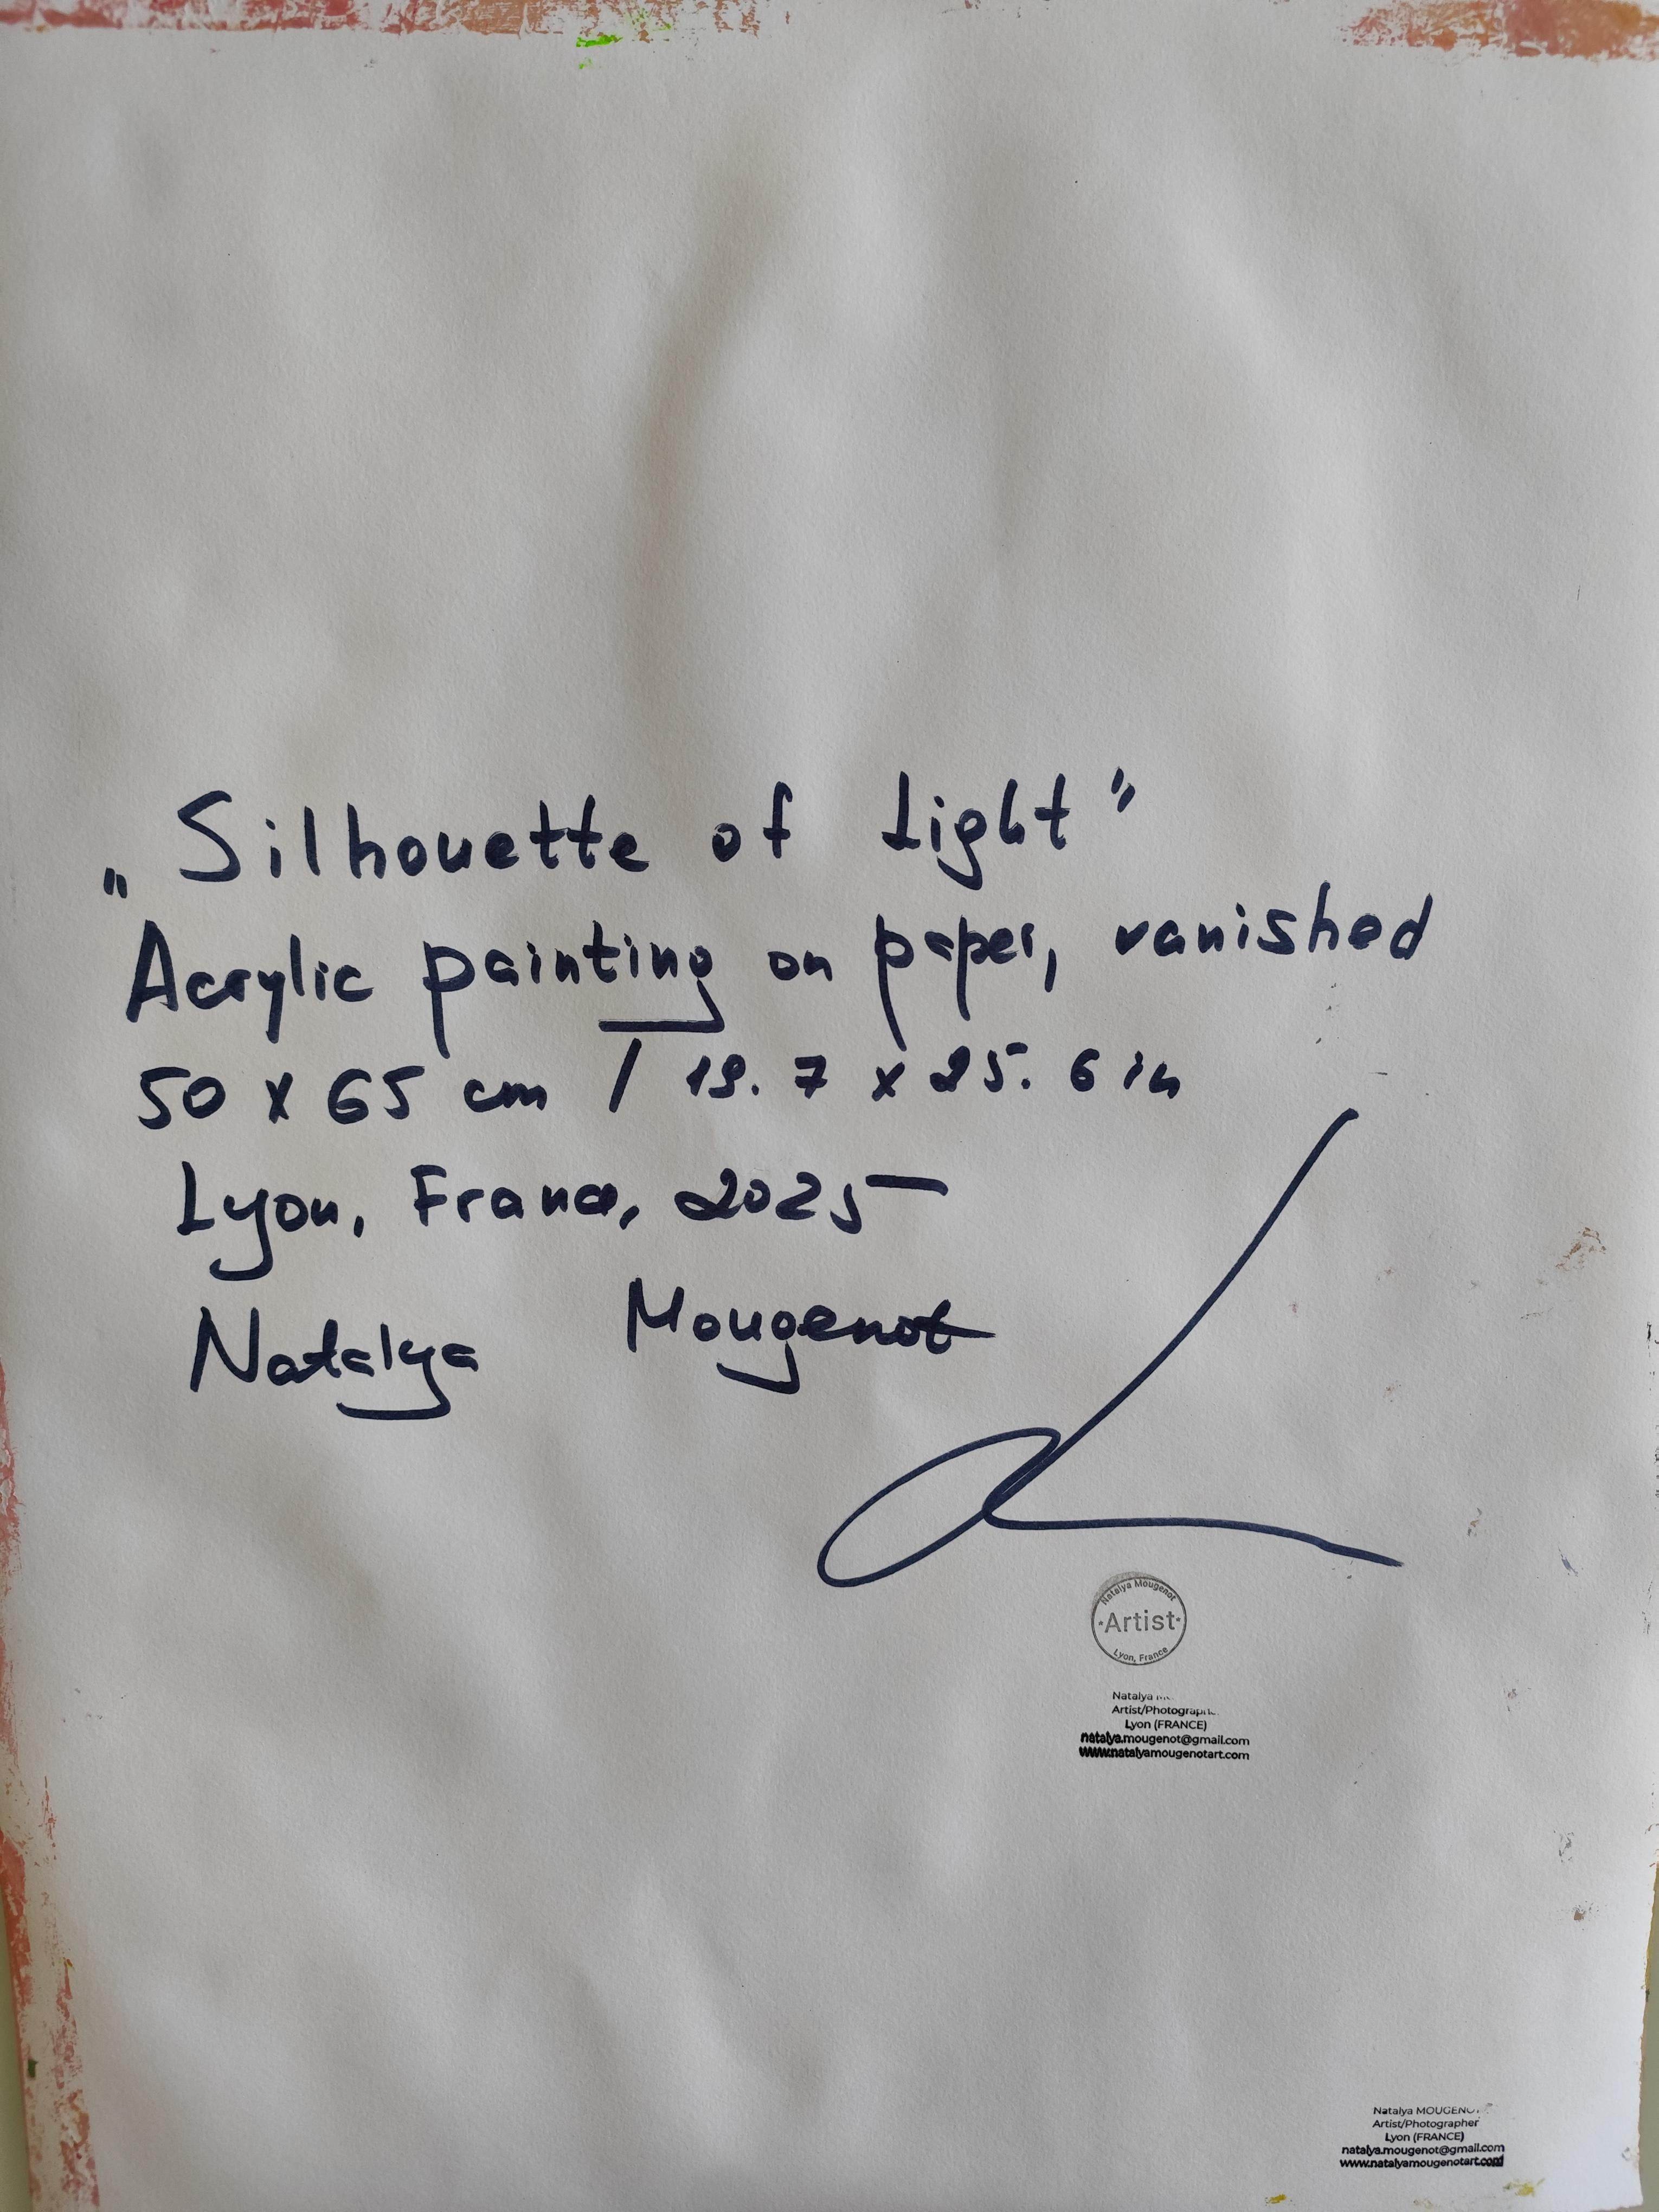 „Silhouette of Light”
Acrylic painting on paper, vanished
50 x 65 cm / 19.7 x 25.6 in
Lyon, France, 2025
Natalya Mougenot
Natalya Mougenot
·Artist·
Lyon, France
Natalya
Artist/Photographe
Lyon (FRANCE)
natalya.mougenot@gmail.com
www.natalyamougenotart.com
Natalya MOUGENOT
Artist/Photographer
Lyon (FRANCE)
natalya.mougenot@gmail.com
www.natalyamougenotart.com